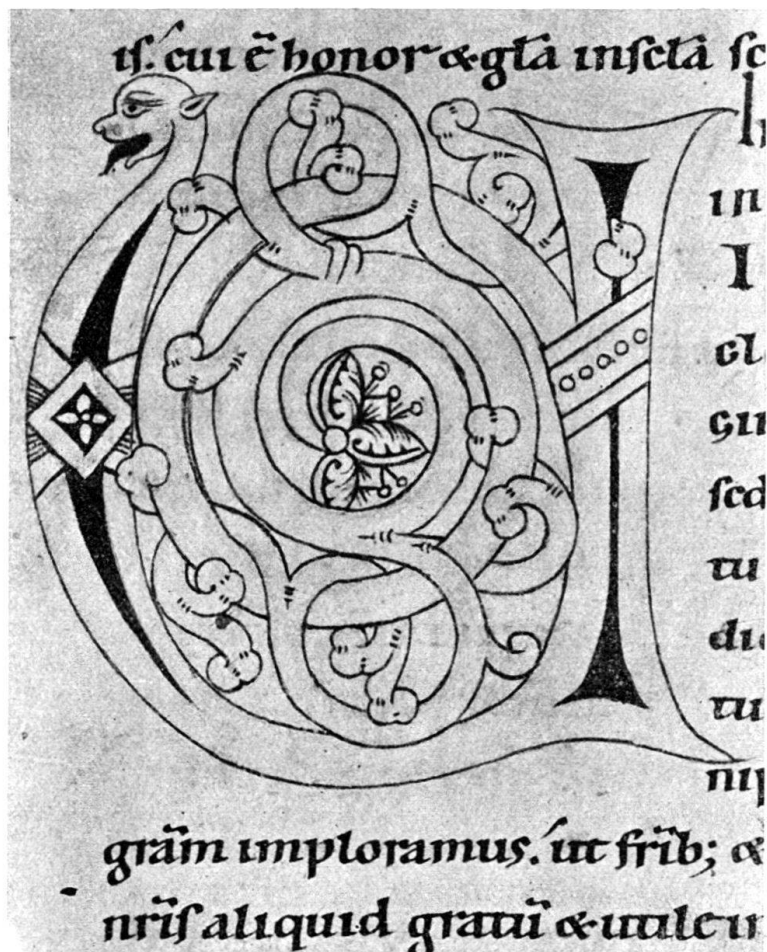 is. cui ē honor & gl̄a in scl̄a sc
in
I
cl
gu
sed
tu
di
tu
nip
grām imploramus. ut frīb; &
nrīs aliquid gratū & utile in